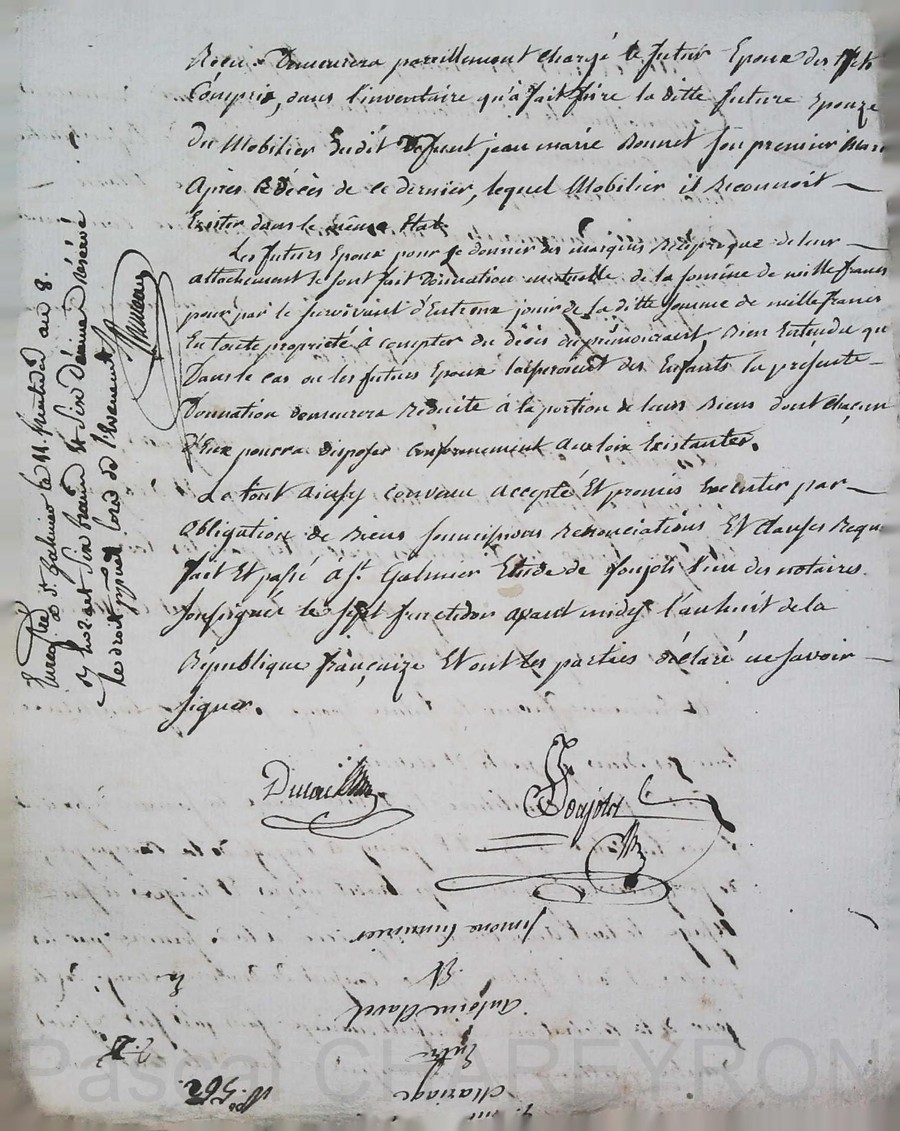 Reçu. Demeurera pareillement chargé le futur Epoux des effets
Compris, dans l'inventaire qu'a fait faire la ditte future Epouze
du Mobilier dudit Defunt jean marie Bonnet son premier Mari
Après le décès de ce dernier, lequel Mobilier il Reconnoit
Exister dans le même Etat.
Les futurs Epoux pour se donner des marques Réciproque de leur
attachement se sont fait Donnation mutuelle de la somme de mille francs
pour par le survivant d'Entreux jouir de la ditte somme de mille francs
En toute propriété à compter du décès du prémourant, Bien Entendu que
Dans le cas ou les futurs Epoux laisseroient des Enfants la présente
Donnation demeurera Réduite à la portion de leurs Biens dont chacun
d'Eux pourra disposer conformement aux loix Existantes.
Le tout ainsy convenu accepté Et promis Executer par
Obligation de Biens soumissions Renonciations Et clauses Requi
fait Et passé a St. Galmier Etude de Poujols l'un des notaires
soussignés le sept fructidor avant midy l'an huit de la
République françaize Et ont les parties déclaré ne savoir
signer.
Enregistré a St. Galmier le 11 fructidor an 8.
Reçu Six francs
Le droit
Poujols
Mariage
Entre
Antoine Clavel
Et
Simone
No. 562
Pascal CHAREYRON